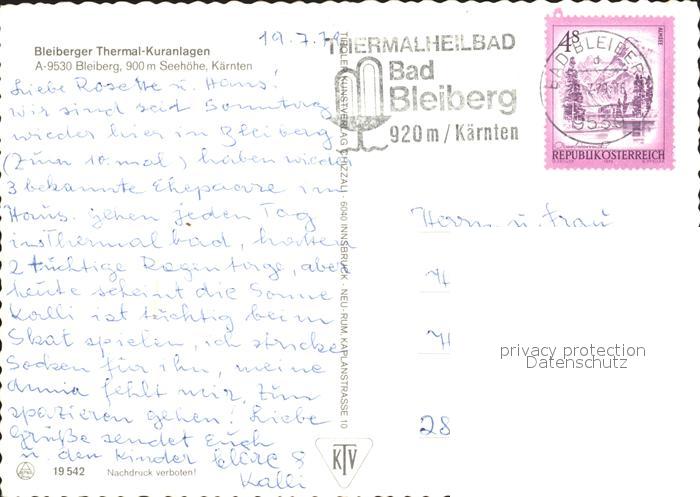 Bleiberger Thermal-Kuranlagen
A-9530 Bleiberg, 900 m Seehöhe, Kärnten
19.7.79
Liebe Rosette u. Hans!
wir sind seid Sonntag
wieder hier in Bleiberg
(zum 10. mal) haben wieder
3 bekannte Ehepaare im
Haus. gehen jeden Tag
ins Thermalbad, hatten
2 tüchtige Regentage, aber
heute scheint die Sonne
Kalli ist tüchtig beim
Skat spielen, ich stricke
Socken für ihn, meine
fehlt mir, zum
spazieren gehen! Liebe
Grüße sendet Euch
u. den Kinder
Kalli
19 542 Nachdruck verboten!
TIROLER KUNSTVERLAG CHIZZALI · 6040 INNSBRUCK - NEU-RUM, KAPLANSTRASSE 10
KTV
THERMALHEILBAD
Bad
Bleiberg
920 m / Kärnten
BAD BLEIBERG
4 S
ALMSEE
REPUBLIK ÖSTERREICH
Herrn u. Frau
H
H
28
privacy protection
Datenschutz